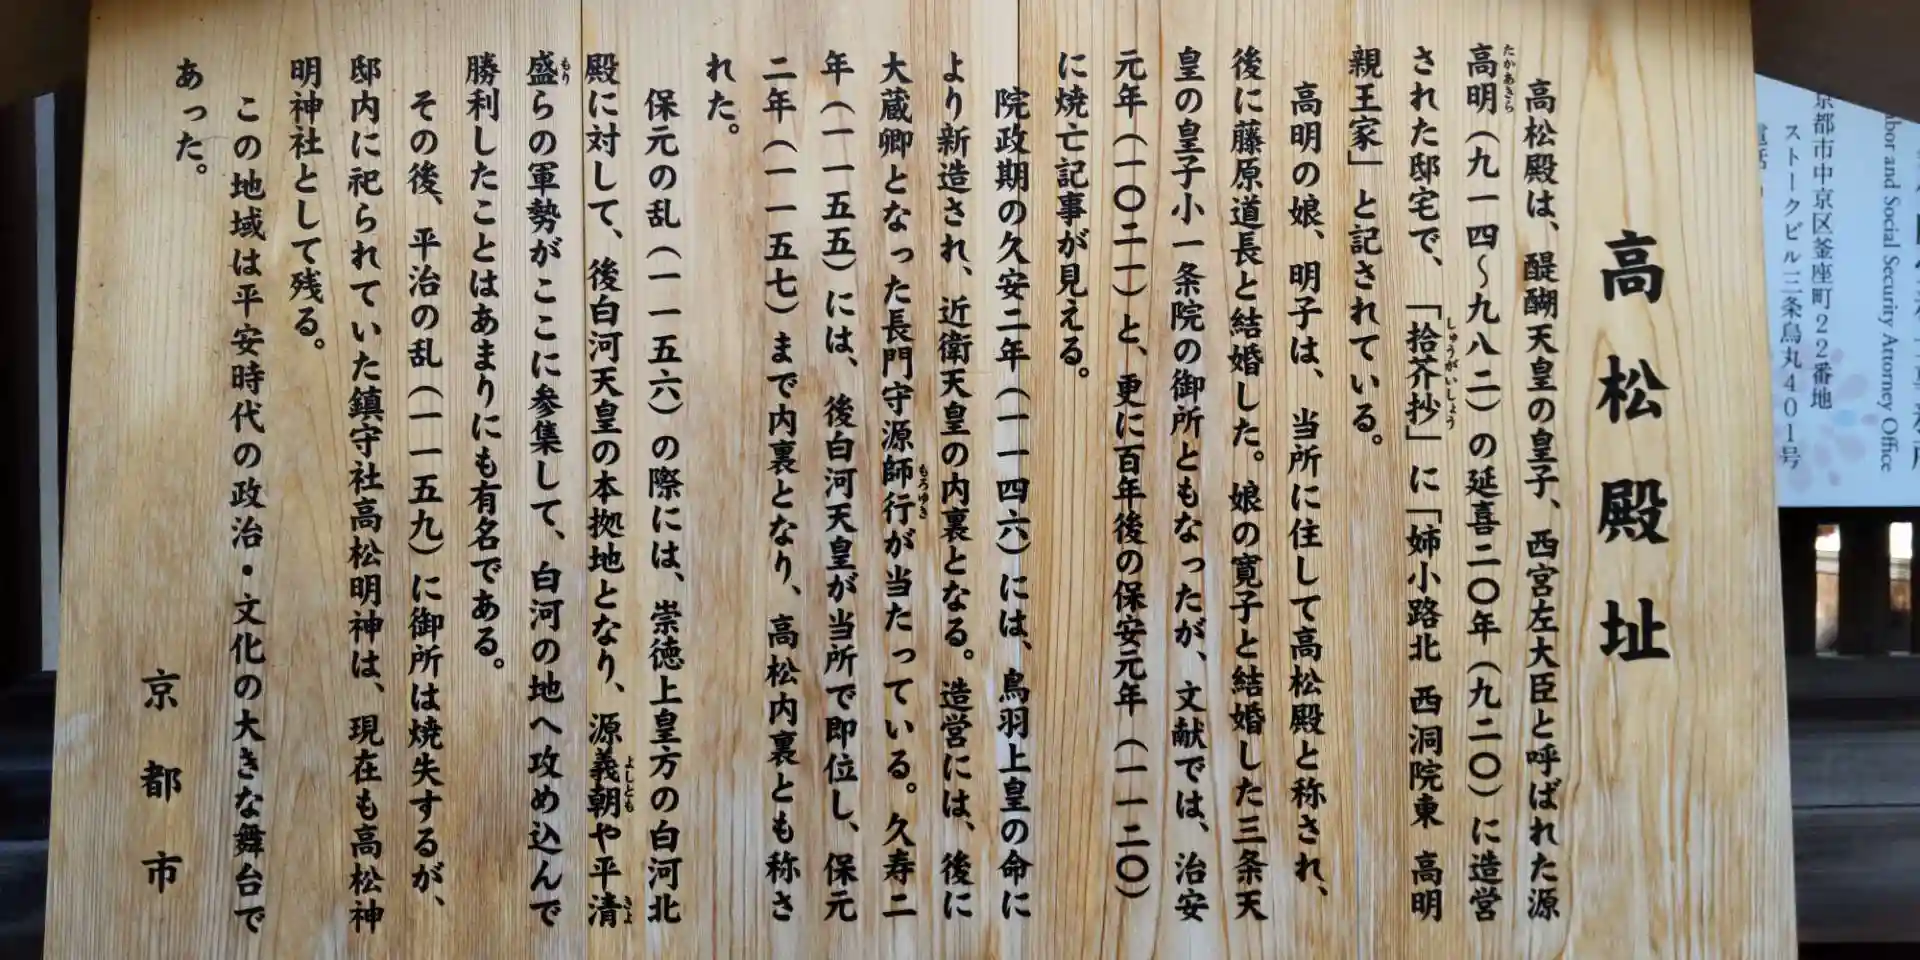 高松殿址
高松殿は、醍醐天皇の皇子、西宮左大臣と呼ばれた源
高明（九一四～九八二）の延喜二〇年（九二〇）に造営
たかあきら
された邸宅で、「拾芥抄」に「姉小路北 西洞院東 高明
しゅうがいしょう
親王家」と記されている。
高明の娘、明子は、当所に住して高松殿と称され、
後に藤原道長と結婚した。娘の寛子と結婚した三条天
皇の皇子小一条院の御所ともなったが、文献では、治安
元年（一〇二一）と、更に百年後の保安元年（一一二〇）
に焼亡記事が見える。
院政期の久安二年（一一四六）には、鳥羽上皇の命に
より新造され、近衛天皇の内裏となる。造営には、後に
大蔵卿となった長門守源師行が当たっている。久寿二
もろゆき
年（一一五五）には、後白河天皇が当所で即位し、保元
二年（一一五七）まで内裏となり、高松内裏とも称さ
れた。
保元の乱（一一五六）の際には、崇徳上皇方の白河北
殿に対して、後白河天皇の本拠地となり、源義朝や平清
よしとも
きよ
盛らの軍勢がここに参集して、白河の地へ攻め込んで
もり
勝利したことはあまりにも有名である。
その後、平治の乱（一一五九）に御所は焼失するが、
邸内に祀られていた鎮守社高松明神は、現在も高松神
明神社として残る。
この地域は平安時代の政治・文化の大きな舞台で
あった。
京都市
bor and Social Security Attorney Office
京都市中京区釜座町22番地
ストークビル三条烏丸401号